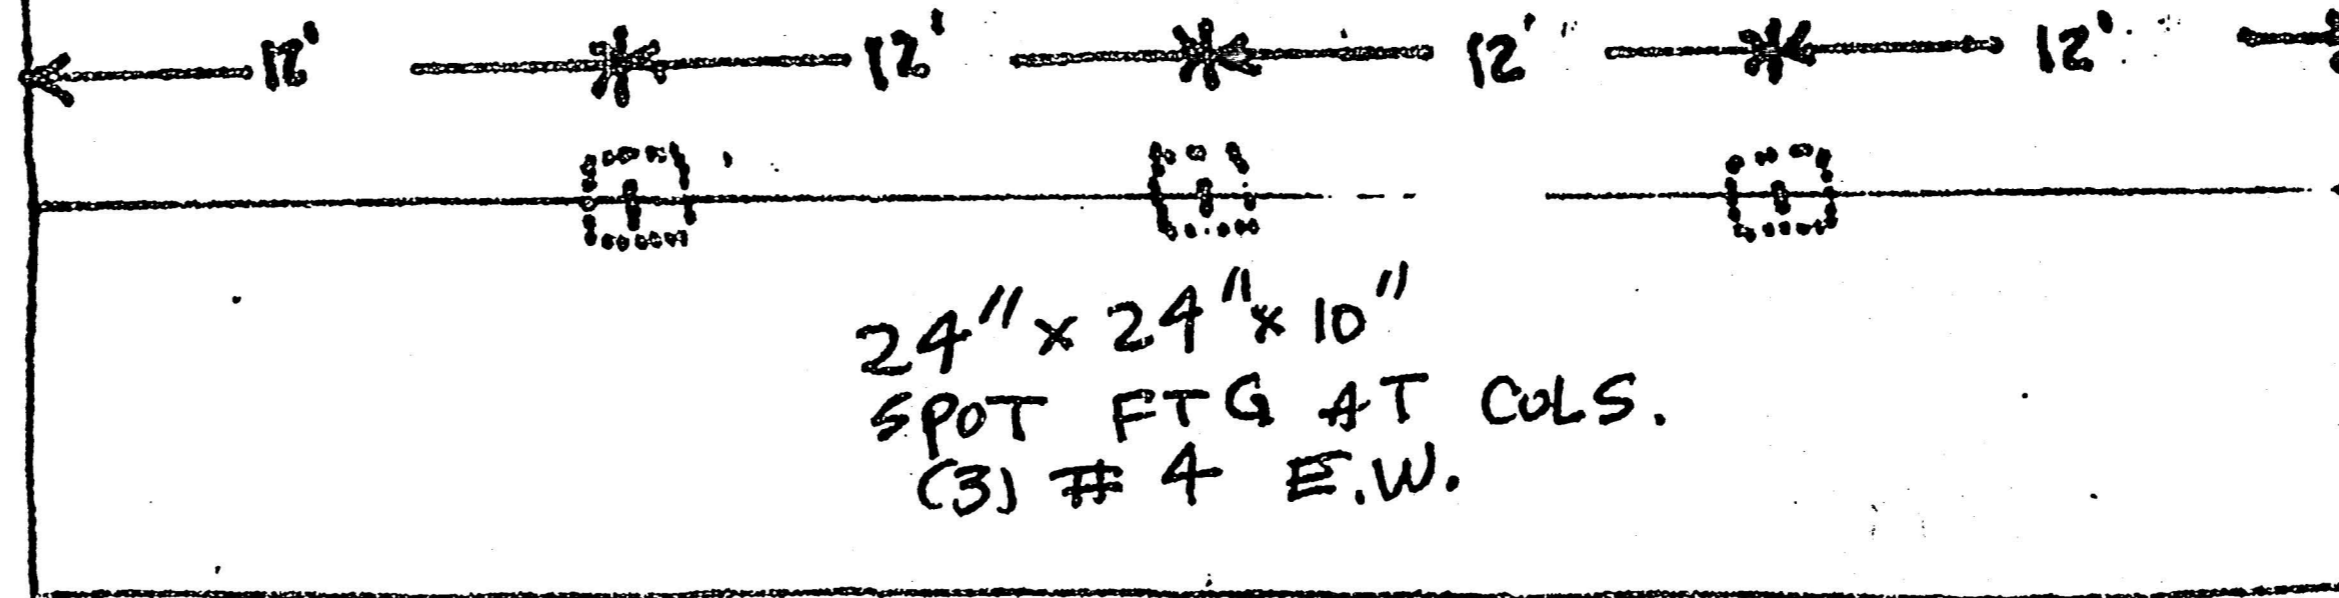 12' 12' 12' 12'
24" x 24" x 10"
SPOT FTG AT COLS.
(3) # 4 E.W.